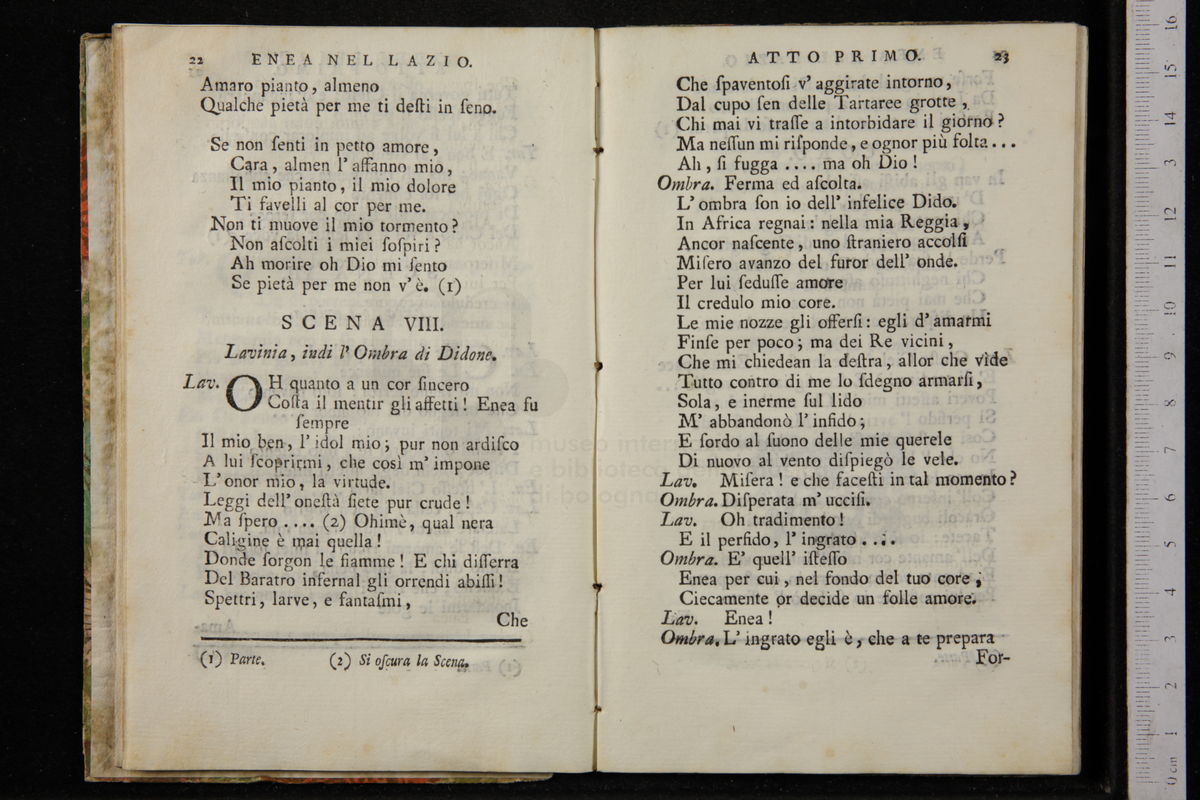 22 ENEA NEL LAZIO.
Amaro pianto, almeno
Qualche pietà per me ti deſti in ſeno.
Se non ſenti in petto amore,
Cara, almen l' affanno mio,
Il mio pianto, il mio dolore
Ti favelli al cor per me.
Non ti muove il mio tormento?
Non aſcolti i miei ſoſpiri?
Ah morire oh Dio mi ſento
Se pietà per me non v' è. (1)
SCENA VIII.
Lavinia, indi l' Ombra di Didone.
Lav. OH quanto a un cor ſincero
Coſta il mentir gli affetti! Enea fu
ſempre
Il mio ben, l' idol mio; pur non ardiſco
A lui ſcoprirmi, che così m' impone
L' onor mio, la virtude.
Leggi dell' oneſtà ſiete pur crude!
Ma ſpero .... (2) Ohimè, qual nera
Caligine è mai quella!
Donde ſorgon le fiamme! E chi diſſerra
Del Baratro infernal gli orrendi abiſſi!
Spettri, larve, e fantaſmi,
Che
(1) Parte. (2) Si oſcura la Scena.
ATTO PRIMO. 23
Che ſpaventoſi v' aggirate intorno,
Dal cupo ſen delle Tartaree grotte,
Chi mai vi traſſe a intorbidare il giorno?
Ma neſſun mi riſponde, e ognor più folta...
Ah, ſi fugga .... ma oh Dio!
Ombra. Ferma ed aſcolta.
L' ombra ſon io dell' infelice Dido.
In Africa regnai: nella mia Reggia,
Ancor naſcente, uno ſtraniero accolſi
Miſero avanzo del furor dell' onde.
Per lui ſeduſſe amore
Il credulo mio core.
Le mie nozze gli offerſi: egli d' amarmi
Finſe per poco; ma dei Re vicini,
Che mi chiedean la deſtra, allor che vide
Tutto contro di me lo ſdegno armarſi,
Sola, e inerme ſul lido
M' abbandonò l' infido;
E ſordo al ſuono delle mie querele
Di nuovo al vento diſpiegò le vele.
Lav. Miſera! e che faceſti in tal momento?
Ombra. Diſperata m' ucciſi.
Lav. Oh tradimento!
E il perfido, l' ingrato ....
Ombra. E' quell' iſteſſo
Enea per cui, nel fondo del tuo core,
Ciecamente or decide un folle amore.
Lav. Enea!
Ombra. L' ingrato egli è, che a te prepara
For-
museo inter
e biblioteca
di bologna
0 cm 1 2 3 4 5 6 7 8 9 10 11 12 13 14 15 16